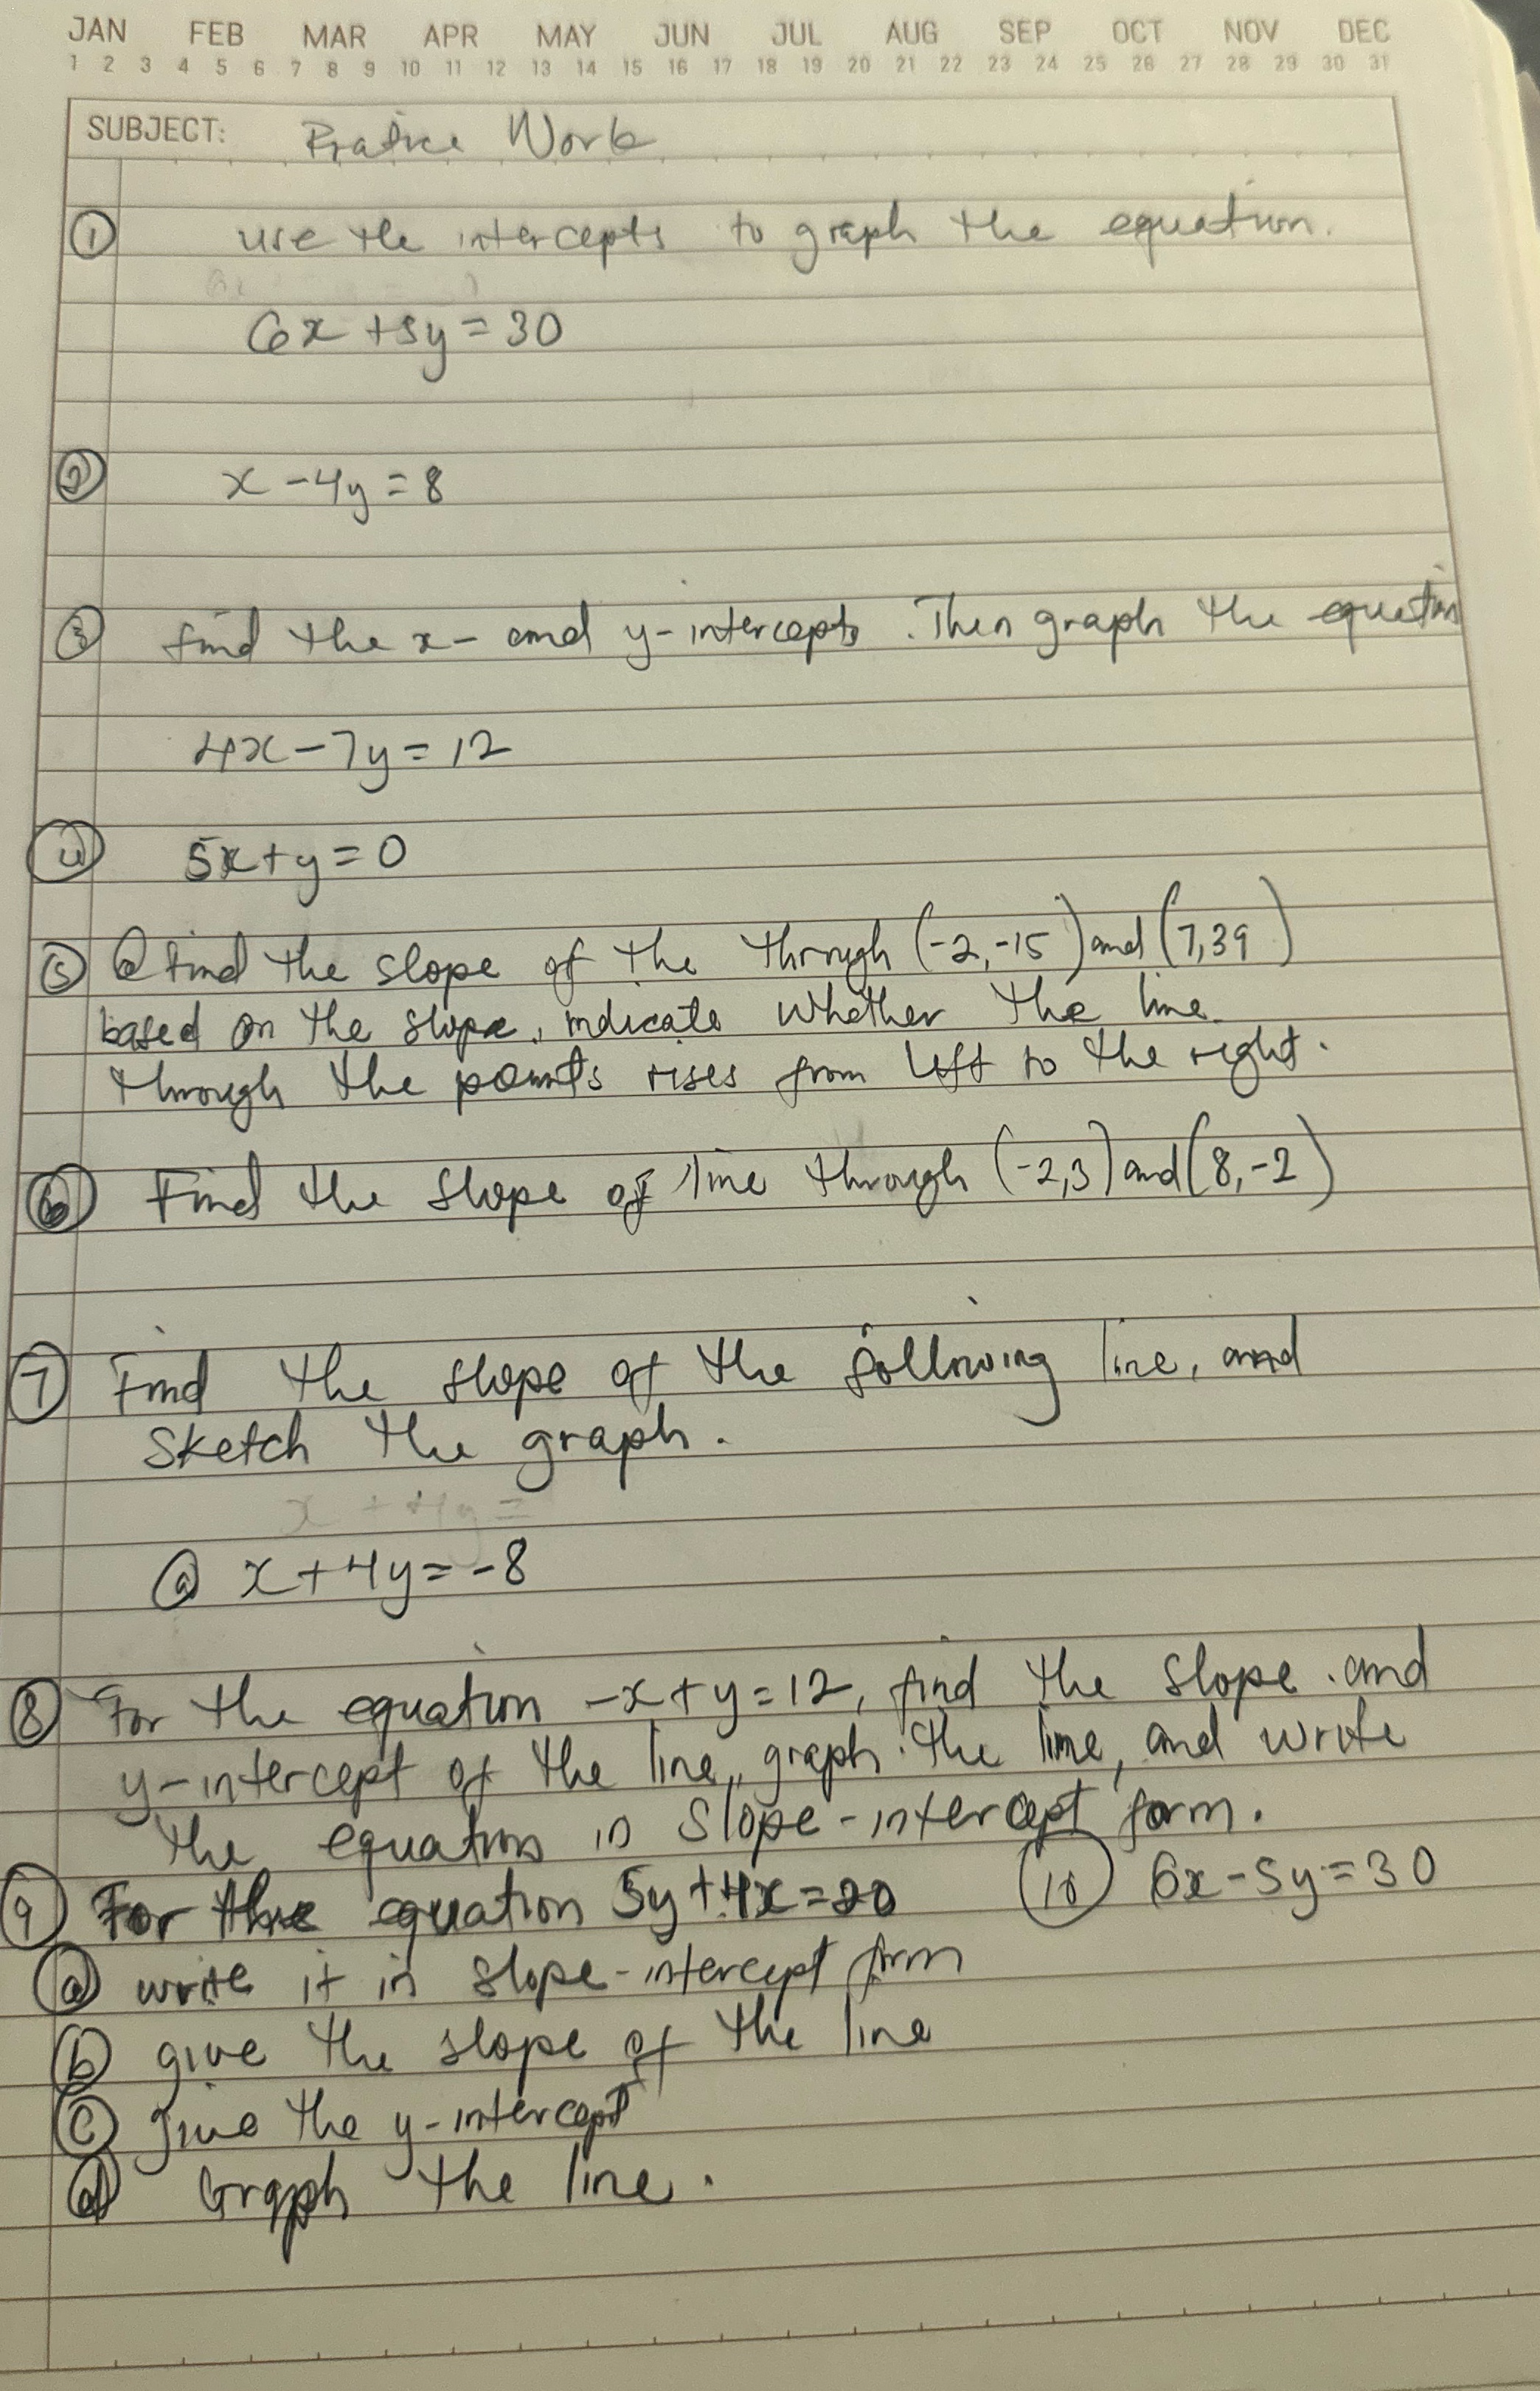 JAN FEB MAR APR MAY JUN JUL AUG SEP OCT NOV DEC
1 2 3 4 5 6 7 8 9 10 11 12 13 14 15 16 17 18 19 20 21 22 23 24 25 26 27 28 29 30 31
SUBJECT: Pratice Work
① use the intercepts to graph the equation.
6x + 5y = 30
② x - 4y = 8
③ find the x- and y-intercepts. Then graph the equation
4x - 7y = 12
④ 5x + y = 0
⑤ ⓐ find the slope of the through (-2,-15) and (7,39)
based on the slope, indicate whether the line
through the points rises from left to the right.
⑥ Find the slope of line through (-2,3) and (8,-2)
⑦ Find the slope of the following line, and
sketch the graph.
x + 4y =
ⓐ x + 4y = -8
⑧ For the equation -x + y = 12, find the slope and
y-intercept of the line, graph the line, and write
the equation in slope-intercept form.
⑨ For the equation 5y + 4x = 20 ⑩ 6x - 5y = 30
ⓐ write it in slope-intercept form
ⓑ give the slope of the line
ⓒ give the y-intercept
ⓓ Graph the line.